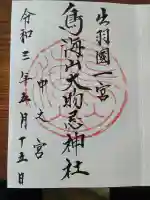 出羽國一宮
鳥海山大物忌神社
中之宮
令和三年五月十五日